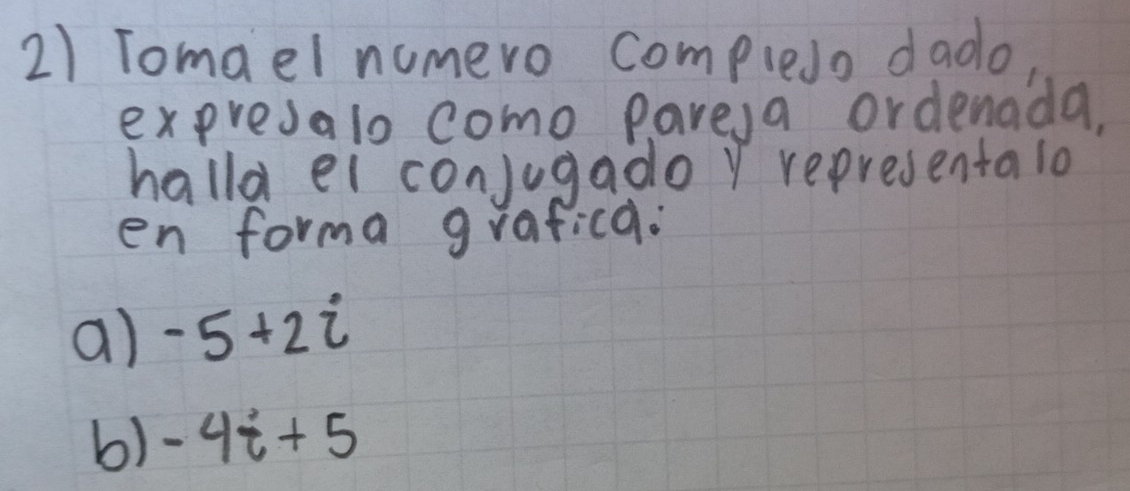 2) Toma el numero complejo dado,
expresalo como pareja ordenada,
halla el conjugado y representalo
en forma grafica:
a) -5+2i
b) -4i+5